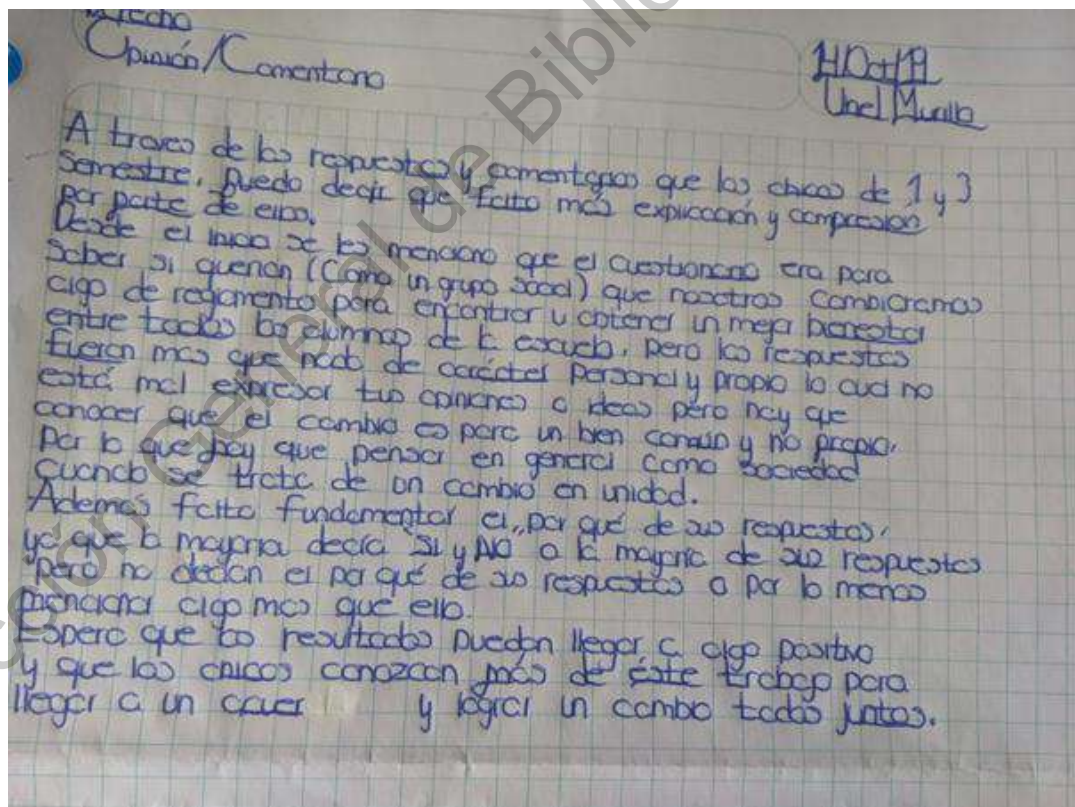 Derecho
Opinión/Comentario
Uael
A traves de las respuestas y comentarios que los chicos de 1 y 3
semestre, puedo decir que falto más explicación y compresion
por parte de ellos.
Desde el inicio se les menciono que el cuestionario era para
saber si querian (Como un grupo social) que nosotros cambiaramos
algo de reglamento para encontrar u obtener un mejor bienestar
entre todos los alumnos de la escuela, pero las respuestas
fueron mas que nada de carácter personal y propio lo cual no
está mal expresar tus opiniones o ideas pero hay que
conocer que el cambio es para un bien común y no propio,
por lo que hay que pensar en general como sociedad
cuando se trata de un cambio en unidad.
Además falto fundamentar el "por qué de sus respuestas,
ya que la mayoria decía "SI y NO a la mayoria de sus respuestas
pero no decían el por qué de sus respuestas o por lo menos
mencionar algo mas que ello.
Espero que los resultados puedan llegar a algo positivo
y que los chicos conozcan más de éste trabajo para
llegar a un y lograr un cambio todos juntos.
Dirección General de Bibliotecas